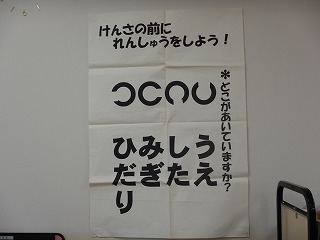 けんさの前に
れんしゅうをしよう！
＊どこがあいていますか？
うえ
した
みぎ
ひだり